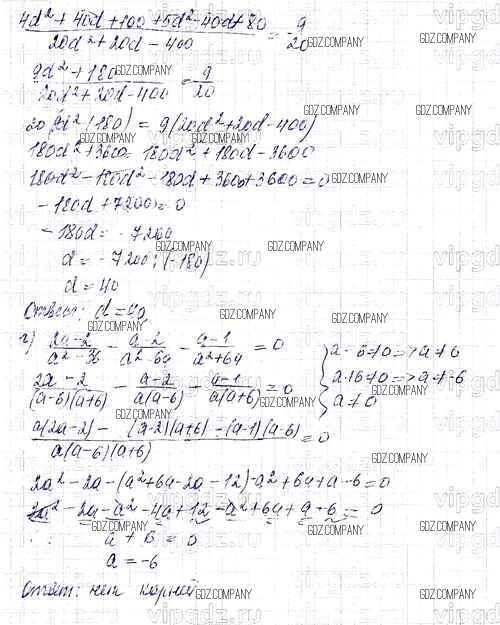 4d² + 40d + 100 + 5d² - 40d + 80 / 20d² + 20d - 400 = 9/20
9d² + 180 / 20d² + 20d - 400 = 9/20
20(9d² + 180) = 9(20d² + 20d - 400)
180d² + 3600 = 180d² + 180d - 3600
180d² - 180d² - 180d + 3600 + 3600 = 0
- 180d + 7200 = 0
- 180d = - 7200
d = - 7200 : (-180)
d = 40
Ответ: d = 40.
г) 2a - 2 / a² - 36 - a - 2 / a² - 6a - a - 1 / a² + 6a = 0
a - 6 ≠ 0 => a ≠ 6
2a - 2 / (a-6)(a+6) - a - 2 / a(a-6) - a - 1 / a(a+6) = 0
a + 6 ≠ 0 => a ≠ -6
a ≠ 0
a(2a-2) - (a-2)(a+6) - (a-1)(a-6) / a(a-6)(a+6) = 0
2a² - 2a - (a² + 6a - 2a - 12) - a² + 6a + a - 6 = 0
2a² - 2a - a² - 4a + 12 - a² + 6a + a - 6 = 0
a + 6 = 0
a = -6
Ответ: нет корней
GDZ.COMPANY
vipgdz.ru